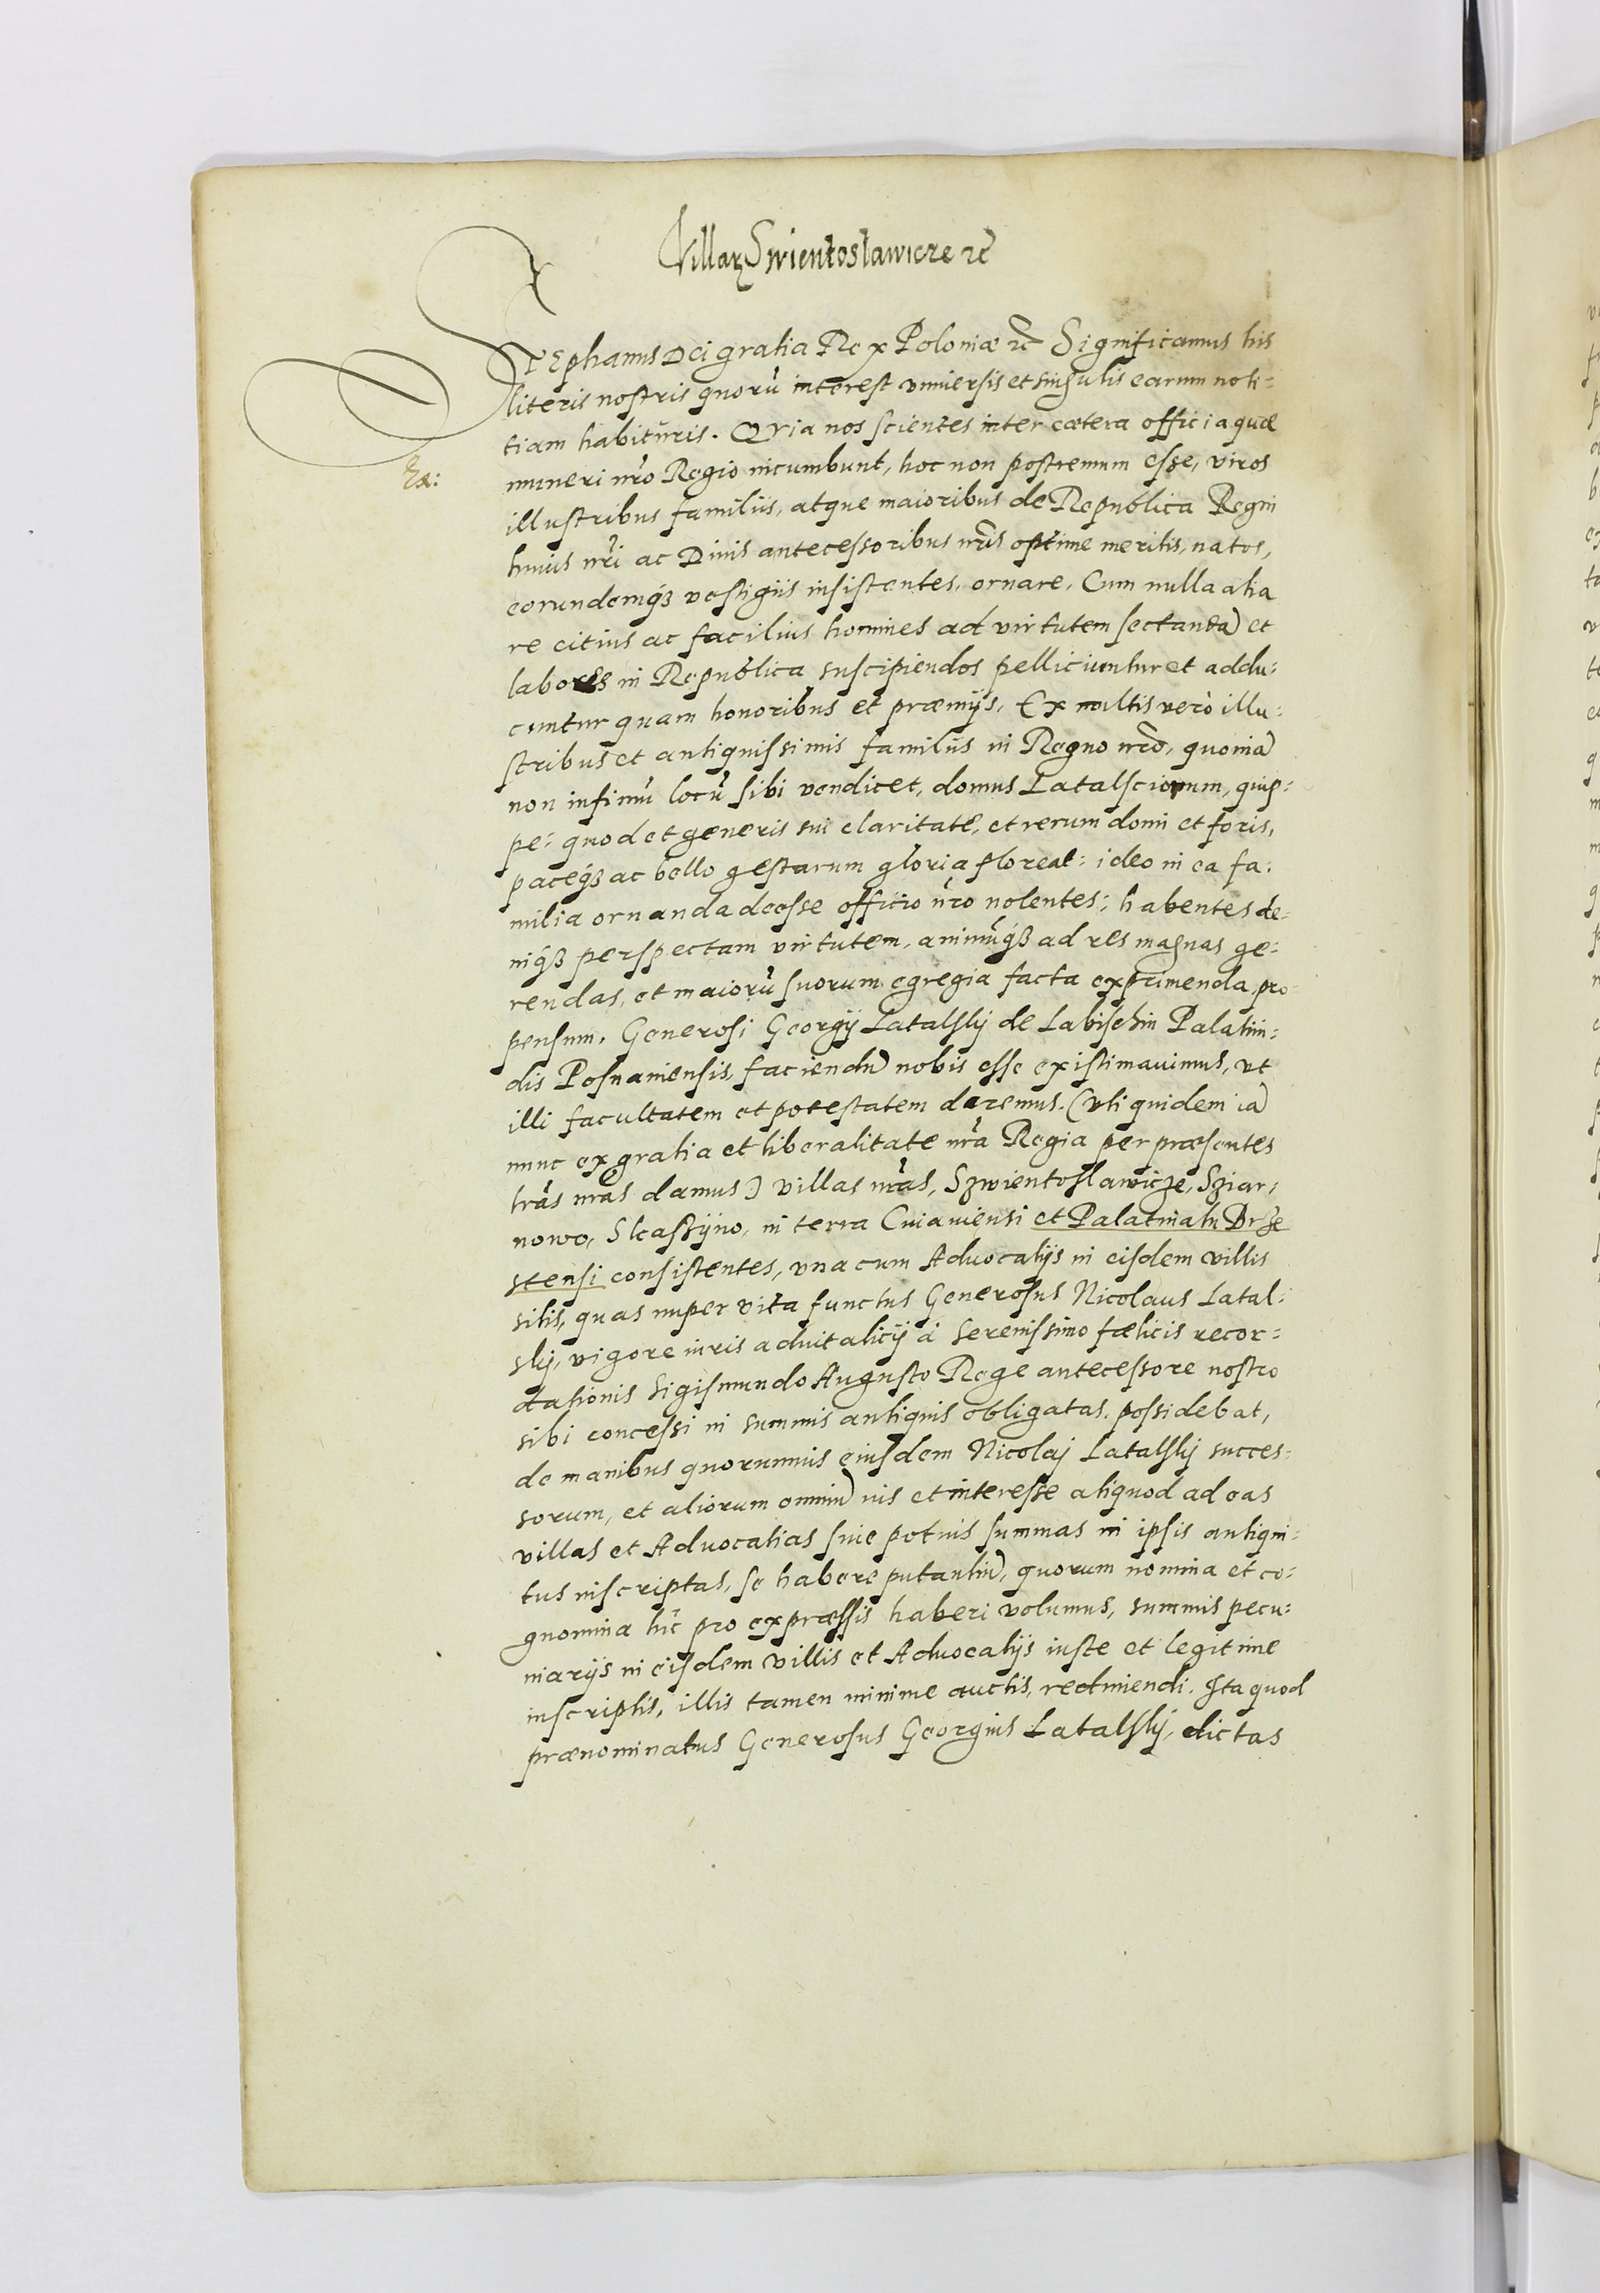 Villar Swientosławicze etc
STEphanus Dei gratia Rex Poloniæ etc Significamus his
literis nostris quorũ interest vniuersis et singulis earum noti-
tiam habituris. Qvia nos scientes inter cætera officia quæ
muneri nr̃o Regio incumbunt, hoc non postremum esse, viros
illustribus familiis, atque maioribus de Republica Regni
huius nr̃i ac Diuis antecessoribus nr̃is optime meritis, natos,
eorundemqȝ vestigiis insistentes, ornare. Cum nulla alia
re citius ac facilius homines ad virtutem sectandã et
labores in Republica suscipiendos pelliciuntur et addu-
cuntur quam honoribus et præmijs. Ex multis verò illu-
stribus et antiquissimis familiis in Regno nr̃o, quoniã
non infimũ locũ sibi vendicet, domus Latalsciorum, quip-
pe: quod et generis sui claritate, et rerum domi et foris,
paceqȝ ac bello gestarum gloria floreat: ideo in ea fa-
milia ornanda deesse officio nr̃o nolentes; habentes de-
niqȝ perspectam virtutem, animũqȝ ad res magnas ge-
rendas, et maiorũ suorum egregia facta exprimenda, pro-
pensum, Generosi Georgij Latalslij de Labischin Palatin-
dis Posnaniensis, faciendũ nobis esse existimauimus, vt
illi facultatem et potestatem daremus. (vti quidem iã
nunc ex gratia et liberalitate nr̃a Regia per præsentes
lr̃as nr̃as damus) villas nr̃as, Szwientoslawicze, Sziar-
nowo, Skaszijno, in terra Cuiauiensi et Palatinatu Brze
stensi consistentes, vna cum Aduocatijs in eisdem villis
sitis, quas nuper vita functus Generosus Nicolaus Latal-
slij, vigore iuris aduitalicij à Serenissimo fœlicis recor-
dationis Sigismundo Augusto Rege antecessore nostro
sibi concessi in summis antiquis obligatas, possidebat,
de manibus quorumuis eiusdem Nicolaj Latalslij succes-
sorum, et aliorum omniũ ius et interesse aliquod ad eas
villas et Aduocatias siue potius summas in ipsis antiqui-
tus inscriptas, se habere putantiũ, quorum nomina et co-
gnomina hic pro expræssis haberi volumus, summis pecu-
niarijs in eisdem villis et Aduocatijs iuste et legitime
inscriptis, illis tamen minime auctis, redimendi. Ita quod
prænominatus Generosus Georgius Latalslij, dictas